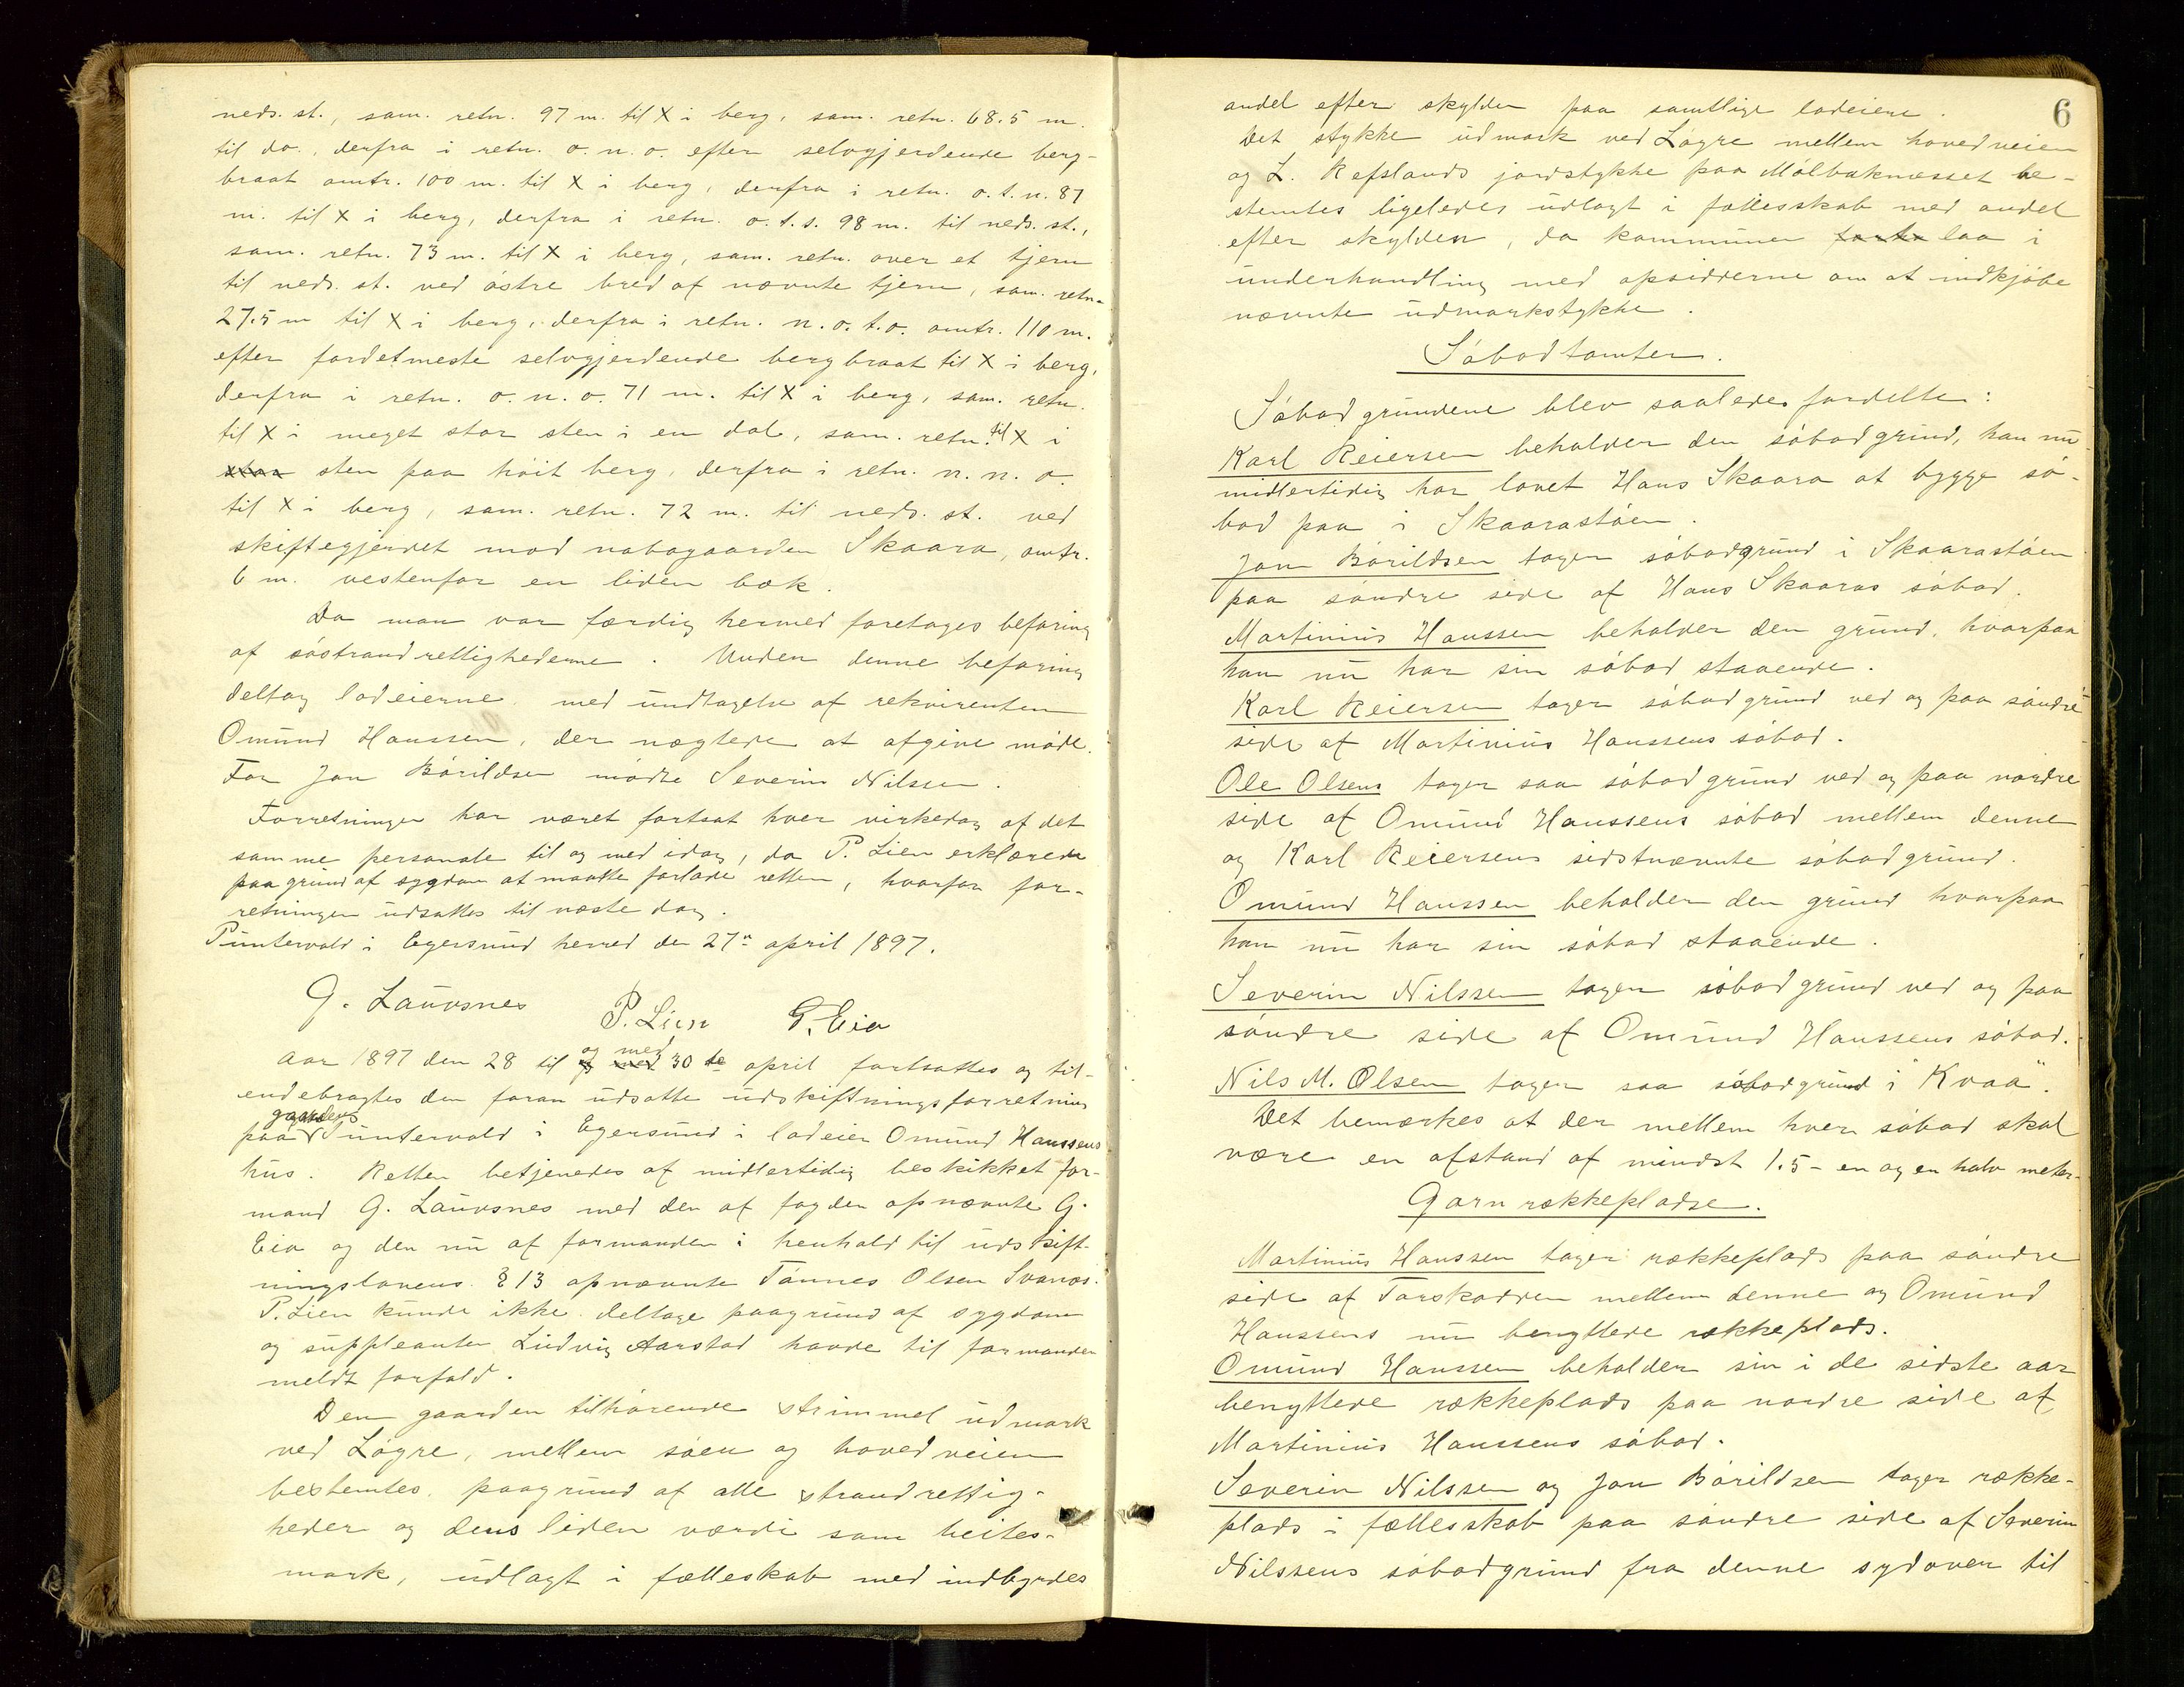 neds. st., sam. retn. 97 m. til X i berg, sam. retn. 68.5 m.
til do., derfra i retn. o. n. o. efter selvgjerdende berg-
braat omtr. 100 m. til X i berg, derfra i retn. o. t. n. 87
m. til X i berg, derfra i retn. o. t. s. 98 m. til neds. st.,
sam. retn. 73 m. til X i berg, sam. retn. over et tjern
til neds. st. ved östre bred af nævnte tjern, sam. retn.
27.5 m til X i berg, derfra i retn. n. o. t. o. omtr. 110 m.
efter fordetmeste selvgjerdende berg braat til X i berg,
derfra i retn. o. n. o. 71 m. til X i berg, sam. retn.
til X i meget stor sten i en dal, sam. retn. til X i
sten paa höit berg, derfra i retn. n. n. o.
til X i berg, sam. retn. 72 m. til neds. st. ved
skiftegjerdet mod nabogaarden Skaara, omtr.
6 m. vestenfor en liden bæk.
Da man var færdig hermed foretoges befaring
af söstrandrettighederne. Under denne befaring
deltog lodeierne med undtagelse af rekvirenten
Omund Hanssen, der nægtede at afgive möde.
For Jon Börildsen mödte Severin Nilssen.
Forretningen har været fortsat hver virkedag af det
samme personale til og med idag, da P. Lien erklærede
paa grund af sygdom at maatte forlade retten, hvorfor for-
retningen udsattes til næste dag.
Puntervold i Egersund herred den 27n april 1897.
G. Lauvsnes P. Lien G. Eia
Aar 1897 den 28 til og med 30 te april fortsattes og til-
endebragtes den foran udsatte udskiftningsforretning
paa gaarden Puntervold i Egersund i lodeier Omund Hanssens
hus. Retten betjenedes af midlertidig beskikket for-
mand G. Lauvsnes med den af fogden opnævnte G.
Eia og den nu af formanden i henhold til udskift-
ningslovens § 13 opnævnte Tönnes Olsen Svanæs.
P. Lien kunde ikke deltage paagrund af sygdom
og suppleanten Ludvig Aarstad havde til formanden
meldt forfald.
Den gaarden tilhörende strimmel udmark
ved Lögre, mellem söen og hovedveien
bestemtes, paagrund af alle strandrettig-
heder og dens liden værdi som beites-
mark, udlagt i fælleskab med indbyrdes
6
andel efter skylden paa samtlige lodeiere.
Det stykke udmark ved Lögre mellem hovedveien
og L. Refslands jordstykke paa Mölbaknesset be-
stemtes ligeledes udlagt i fællesskab med andel
efter skylden, da kommunen laa i
underhandling med opsidderne om at indkjöbe
nævnte udmarkstykke.
Söbodtomter.
Söbodgrundene blev saaledes fordelte:
Karl Reiersen beholder den söbodgrund, han nu
midlertidig har lovet Hans Skaara at bygge sö-
bod paa i Skaarastöen.
Jon Börildsen tager söbodgrund i Skaarastöen
paa söndre side af Hans Skaaras söbod.
Martinius Hanssen beholder den grund, hvorpaa
han nu har sin söbod staaende.
Karl Reiersen tager söbodgrund ved og paa söndre
side af Martinius Hanssens söbod.
Ole Olsens tager saa söbodgrund ved og paa nordre
side af Omund Hanssens söbod mellem denne
og Karl Reiersens sidstnævnte söbodgrund.
Omund Hanssen beholder den grund hvorpaa
han nu har sin söbod staaende.
Severin Nilssen tager söbodgrund ved og paa
söndre side af Omund Hanssens söbod.
Nils M. Olsen tager saa söbodgrund i "Kvaa".
Det bemærkes at der mellem hver söbod skal
være en afstand af mindst 1.5 - en og en halv meter.
Garn rækkepladse.
Martinius Hanssen tager rækkeplads paa söndre
side af Torskodden mellem denne og Omund
Hanssens nu benyttede rækkeplads.
Omund Hanssen beholder sin i de sidste aar
benyttede rækkeplads paa nordre side af
Martinius Hanssens söbod.
Severin Nilssen og Jon Börildsen tager række-
plads i fællesskab paa söndre side af Severin
Nilssens söbodgrund fra denne sydover til